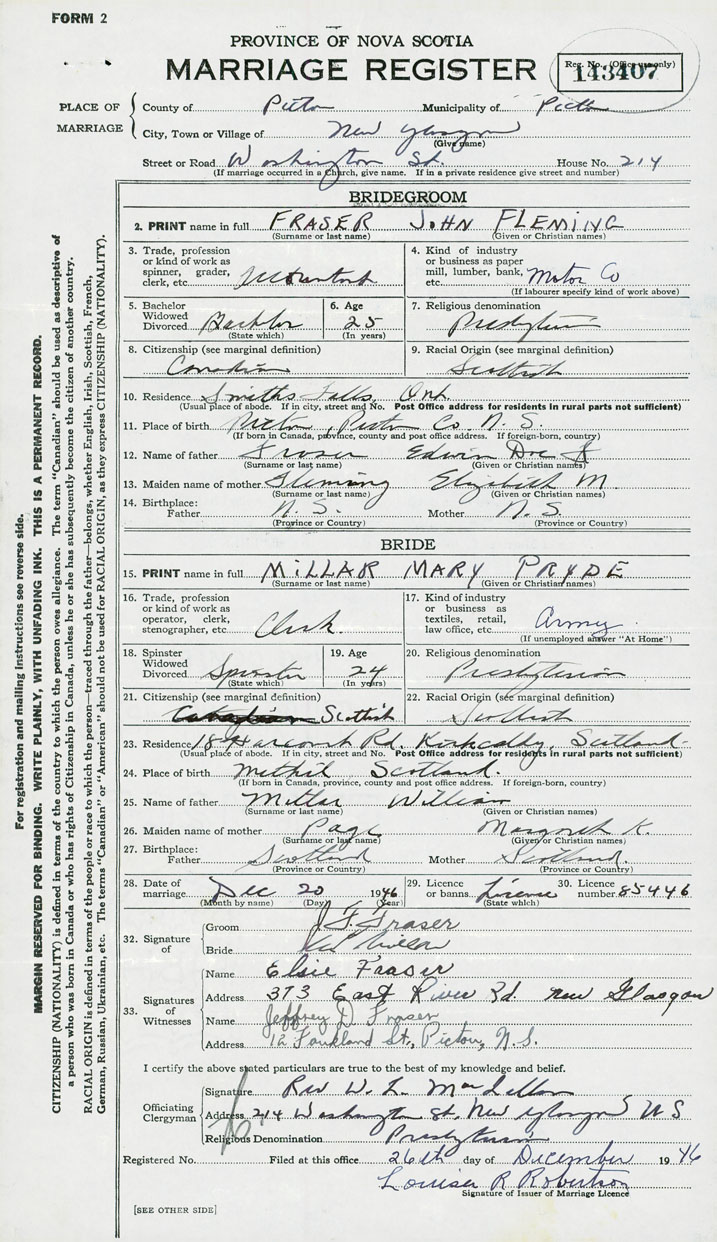 FORM 2
PROVINCE OF NOVA SCOTIA
MARRIAGE REGISTER
Reg. No. (Office use only)
143407
PLACE OF MARRIAGE
County of Pictou Municipality of Pictou
City, Town or Village of New Glasgow
(Give name)
Street or Road Washington St. House No. 214
(If marriage occurred in a Church, give name. If in a private residence give street and number)
BRIDEGROOM
2. PRINT name in full FRASER JOHN FLEMING
(Surname or last name) (Given or Christian names)
3. Trade, profession or kind of work as spinner, grader, clerk, etc.
4. Kind of industry or business as paper mill, lumber, bank, etc. Motor Co
(If labourer specify kind of work above)
5. Bachelor Widowed Divorced Bachelor
(State which)
6. Age 25
(In years)
7. Religious denomination Presbyterian
8. Citizenship (see marginal definition) Canadian
9. Racial Origin (see marginal definition) Scottish
10. Residence Smiths Falls, Ont.
(Usual place of abode. If in city, street and No. Post Office address for residents in rural parts not sufficient)
11. Place of birth Pictou, Pictou Co. N. S.
(If born in Canada, province, county and post office address. If foreign-born, country)
12. Name of father Fraser Edwin
(Surname or last name) (Given or Christian names)
13. Maiden name of mother Fleming Elizabeth M
(Surname or last name) (Given or Christian names)
14. Birthplace: Father N. S. Mother N. S.
(Province or Country) (Province or Country)
BRIDE
15. PRINT name in full MILLAR MARY PRYDE
(Surname or last name) (Given or Christian names)
16. Trade, profession or kind of work as operator, clerk, stenographer, etc. Clerk.
17. Kind of industry or business as textiles, retail, law office, etc. Army
(If unemployed answer "At Home")
18. Spinster Widowed Divorced Spinster
(State which)
19. Age 24
(In years)
20. Religious denomination Presbyterian
21. Citizenship (see marginal definition) Canadian Scottish
22. Racial Origin (see marginal definition) Scottish
23. Residence 18 Harcourt Rd. Kirkcaldy, Scotland
(Usual place of abode. If in city, street and No. Post Office address for residents in rural parts not sufficient)
24. Place of birth Methil Scotland.
(If born in Canada, province, county and post office address. If foreign-born, country)
25. Name of father Millar William
(Surname or last name) (Given or Christian names)
26. Maiden name of mother Page Margaret K.
(Surname or last name) (Given or Christian names)
27. Birthplace: Father Scotland Mother Scotland.
(Province or Country) (Province or Country)
28. Date of marriage Dec 20 1946
(Month by name) (Day) (Year)
29. Licence or banns License
(State which)
30. Licence number 85446
32. Signature of
Groom J. F. Fraser
Bride Millar
33. Signatures of Witnesses
Name Elsie Fraser
Address 373 East River Rd. New Glasgow
Name Jeffrey D. Fraser
Address 12 Faukland St., Pictou, N.S.
I certify the above stated particulars are true to the best of my knowledge and belief.
Officiating Clergyman
Signature Rev W. L. MacLellan
Address 214 Washington St. New Glasgow N S
Religious Denomination Presbyterian
Registered No. Filed at this office 26th day of December 1946
Louisa R Robertson
Signature of Issuer of Marriage Licence
[SEE OTHER SIDE]
For registration and mailing instructions see reverse side.
MARGIN RESERVED FOR BINDING. WRITE PLAINLY, WITH UNFADING INK. THIS IS A PERMANENT RECORD.
CITIZENSHIP (NATIONALITY) is defined in terms of the country to which the person owes allegiance. The term "Canadian" should be used as descriptive of
a person who was born in Canada or who has rights of Citizenship in Canada, unless he or she has subsequently become the citizen of another country.
RACIAL ORIGIN is defined in terms of the people or race to which the person—traced through the father—belongs, whether English, Irish, Scottish, French,
German, Russian, Ukrainian, etc. The terms "Canadian" or "American" should not be used for RACIAL ORIGIN, as they express CITIZENSHIP (NATIONALITY).